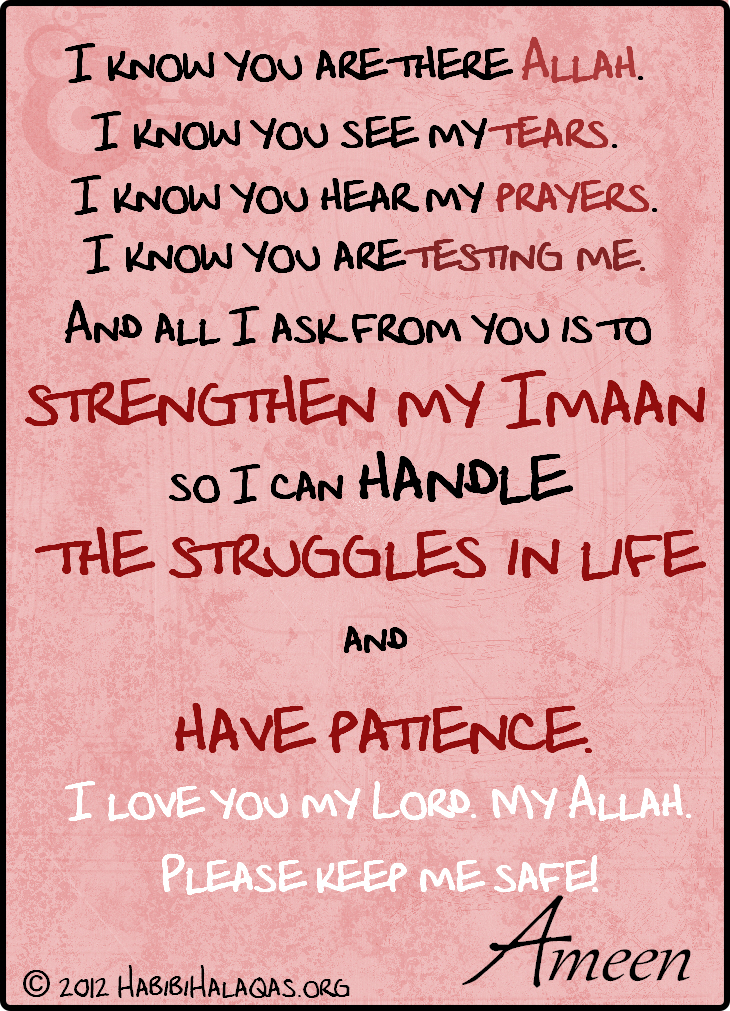 I know you are there Allah.
I know you see my tears.
I know you hear my prayers.
I know you are testing me.
And all I ask from you is to
strengthen my Imaan
so I can handle
the struggles in life
and
have patience.
I love you my Lord. My Allah.
Please keep me safe!
Ameen
© 2012 HabibiHalaqas.org